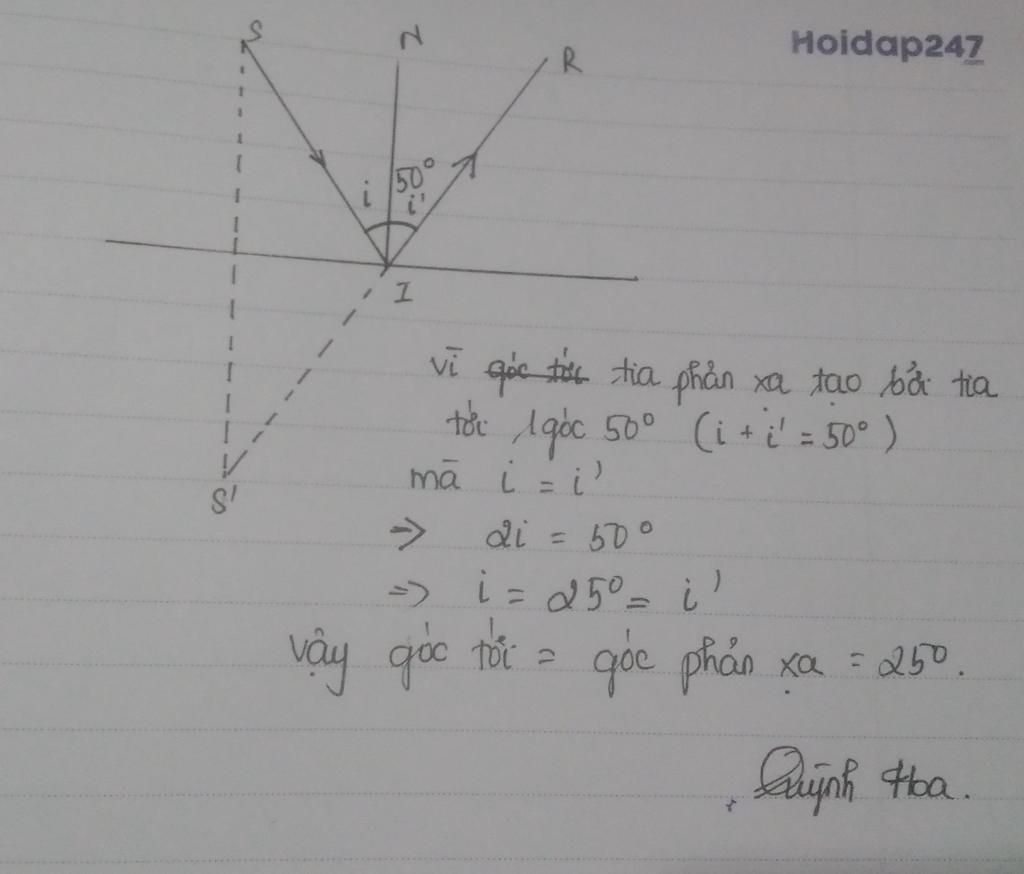 Hoidap247
.com
S
N
R
50°
i
i'
I
S'
vì góc tới tia phản xạ tạo bởi tia
tới 1 góc 50° (i + i' = 50°)
mà i = i'
=> 2i = 50°
=> i = 25° = i'
vậy góc tới = góc phản xạ = 25°.
Quỳnh Hoa.